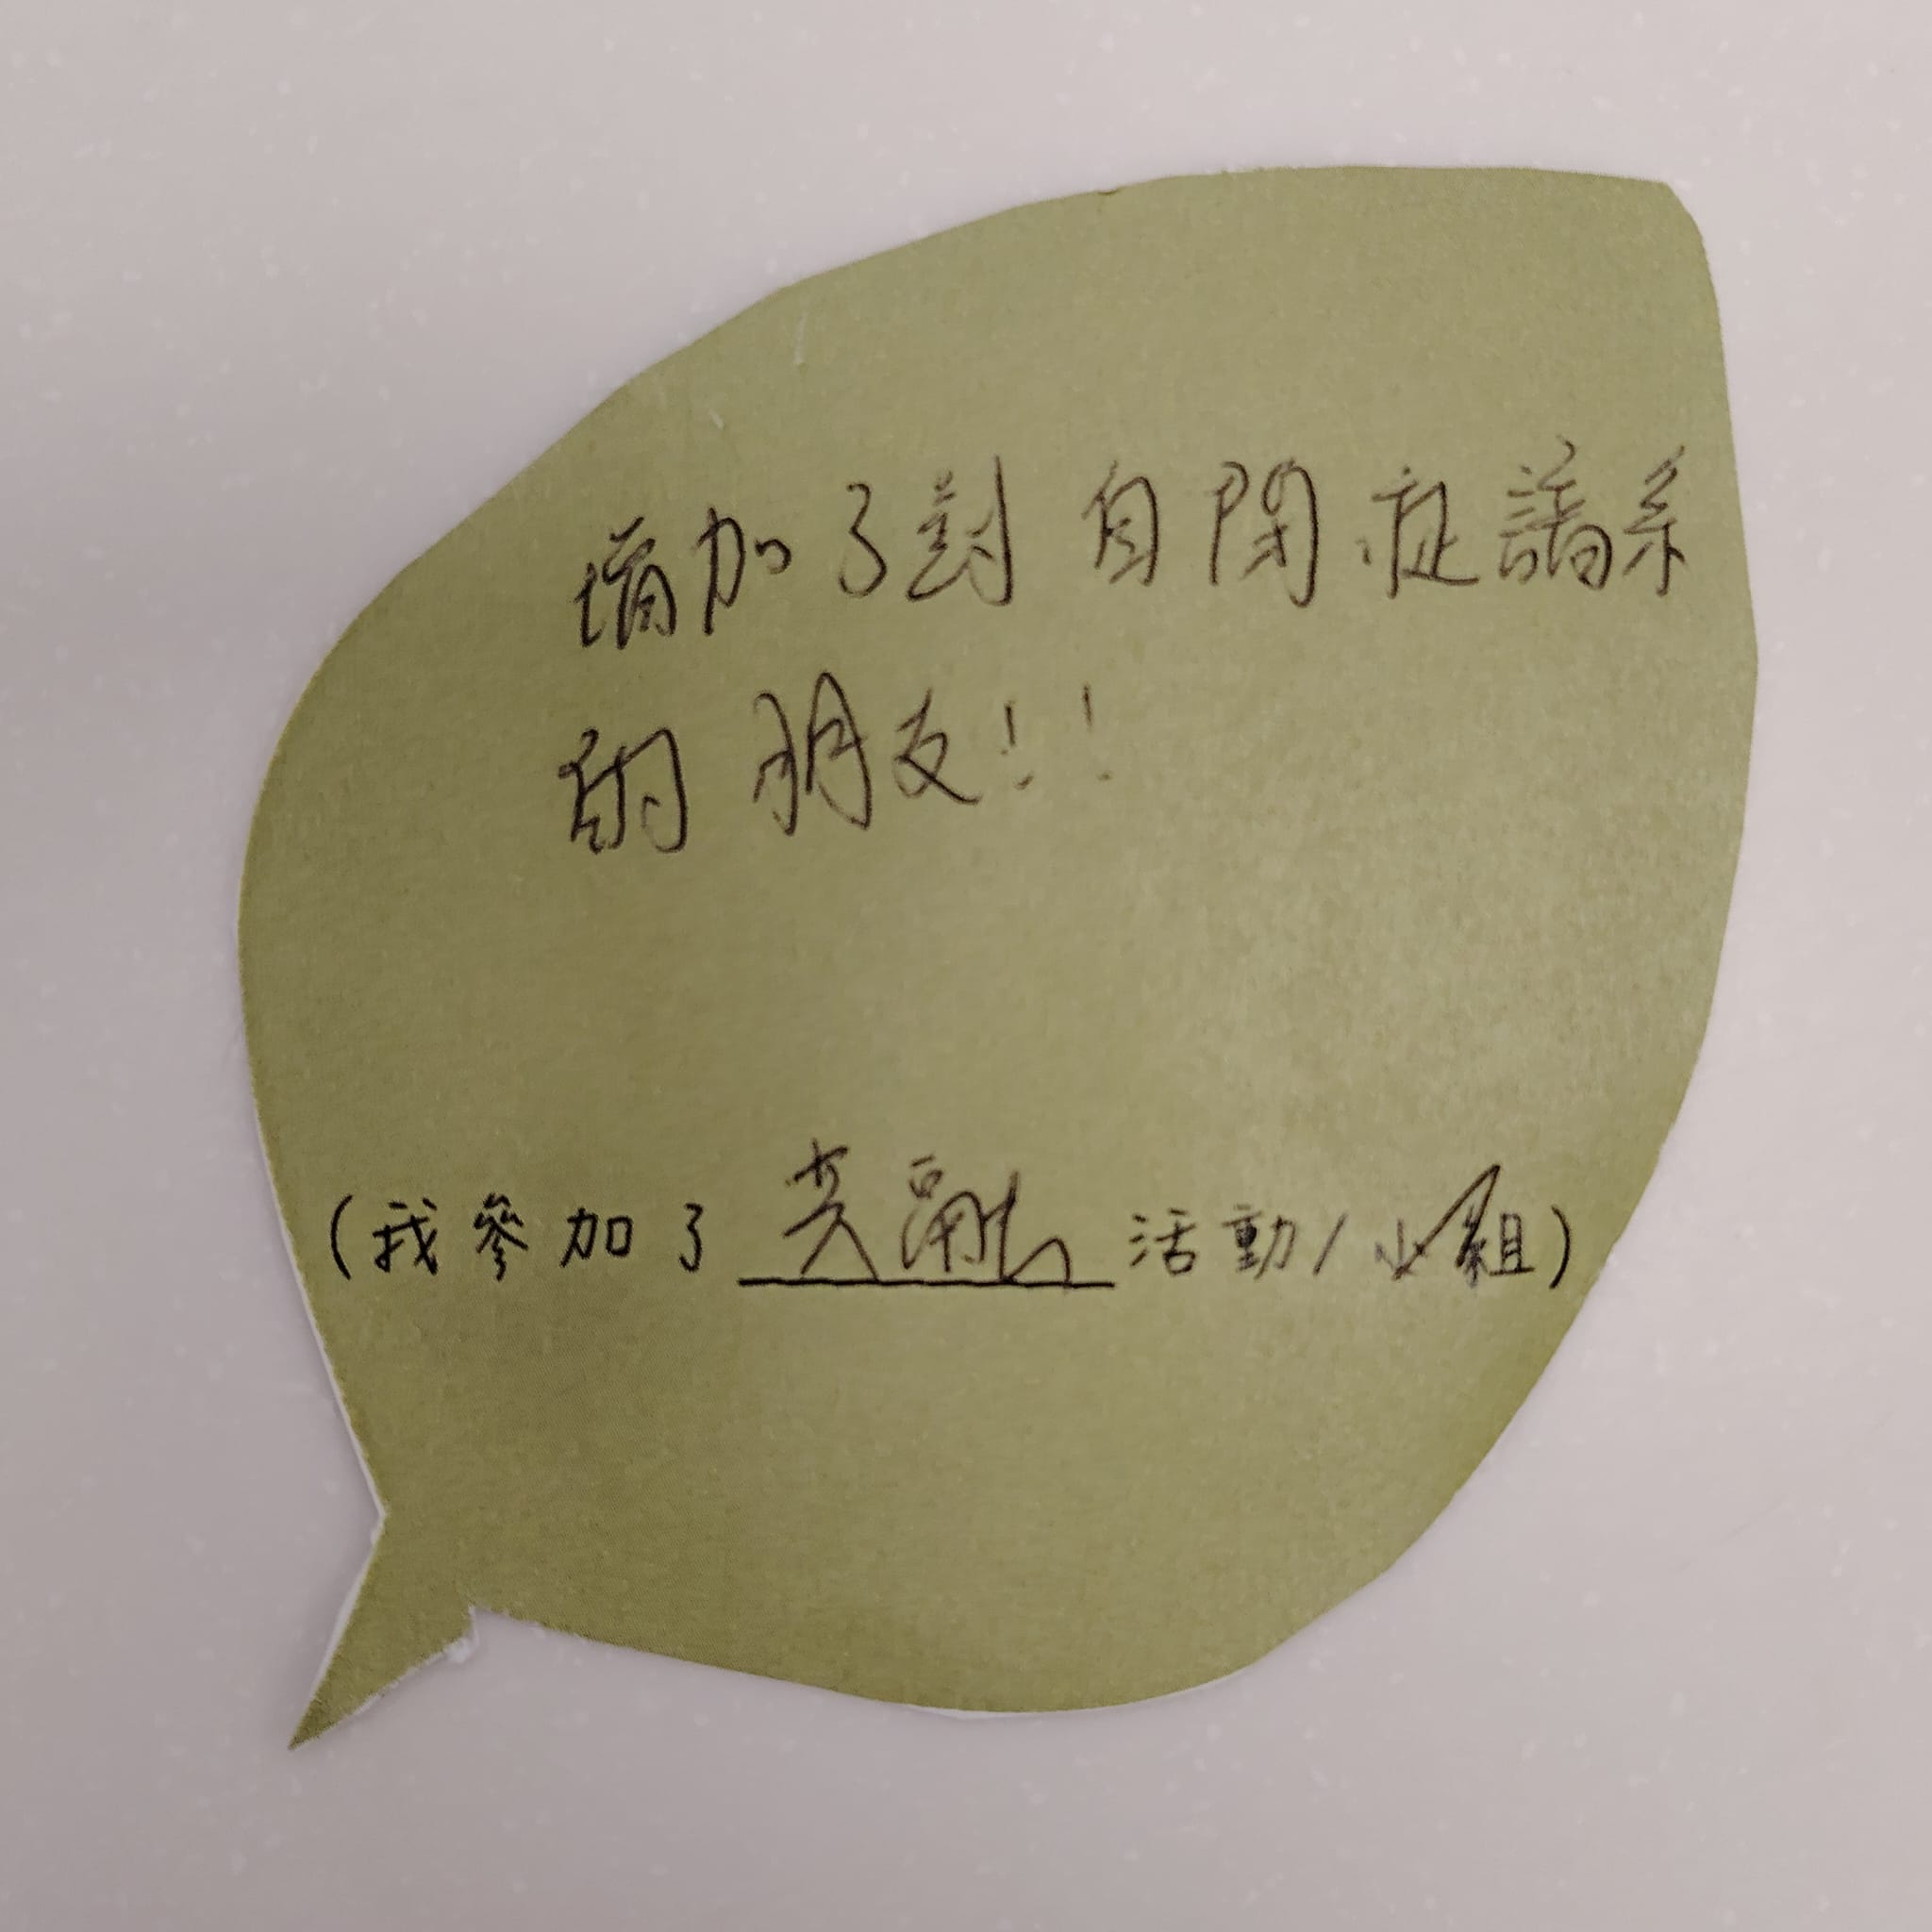 增加了對自閉症譜系
的朋友!!
(我參加了共融活動/小組)